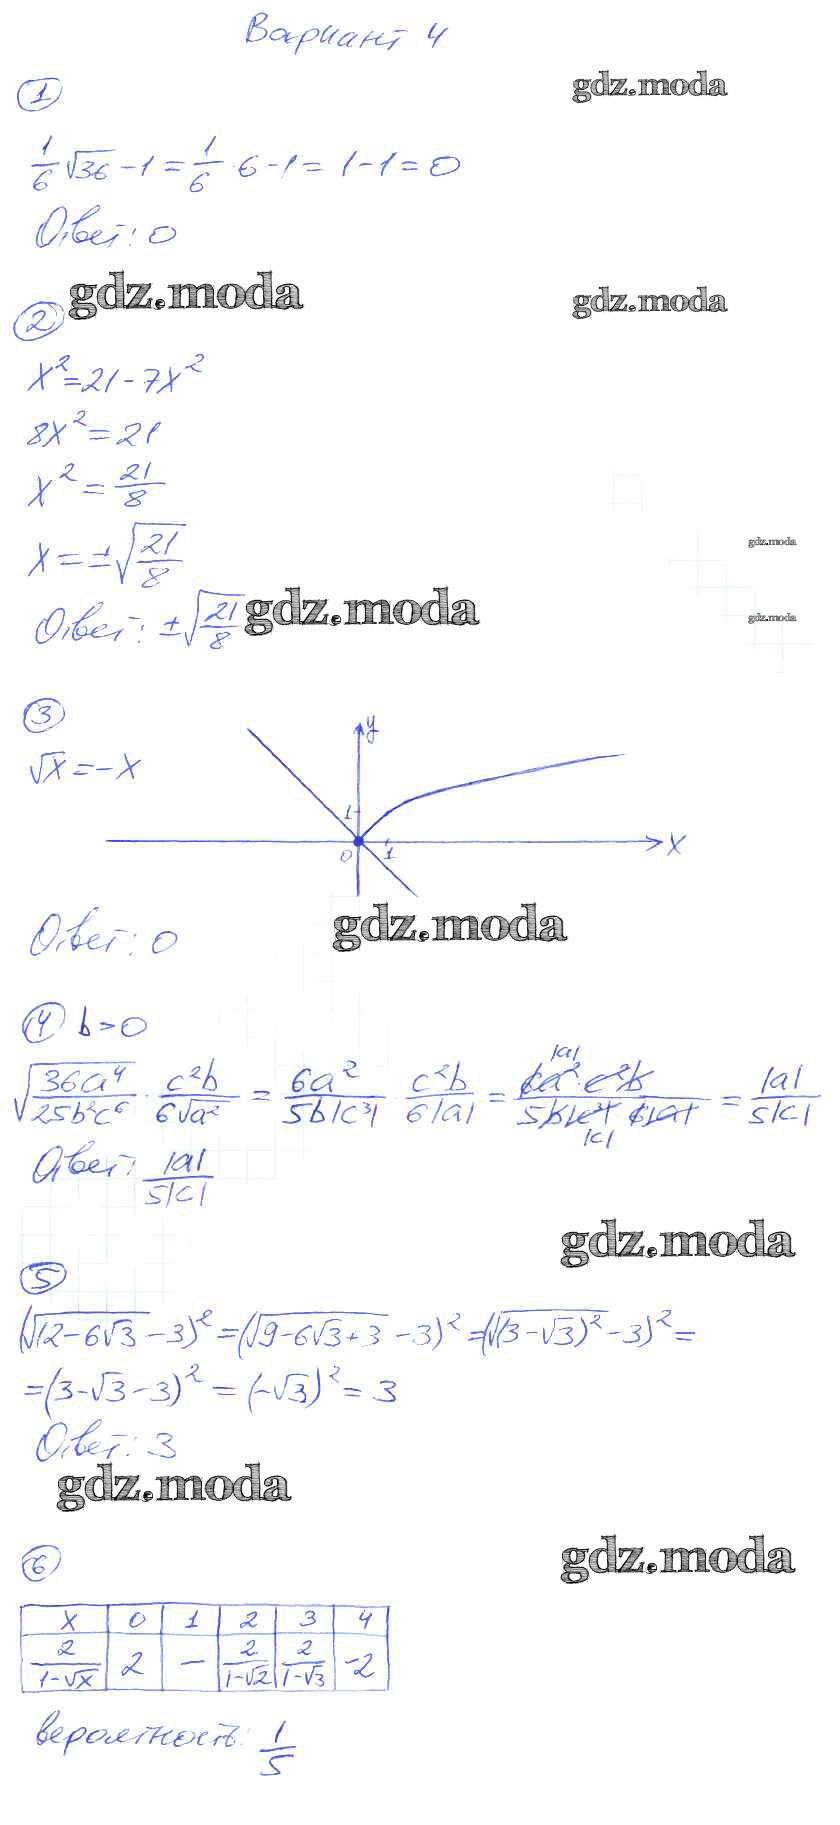 Вариант 4
gdz.moda
1
1/6 √36 - 1 = 1/6 · 6 - 1 = 1 - 1 = 0
Ответ: 0
gdz.moda
gdz.moda
2
x² = 21 - 7x²
8x² = 21
x² = 21/8
gdz.moda
x = ±√(21/8)
gdz.moda
Ответ: ±√(21/8)
gdz.moda
3
y
√x = -x
1
x
0 1
gdz.moda
Ответ: 0
4 b > 0
√(36a⁴/25b²c⁶) · c²b/6√a² = 6a²/5b|c³| · c²b/6|a| = 6a² · c²b/5b|c³| 6|a| = |a|/5|c|
|a|
|c|
Ответ: |a|/5|c|
gdz.moda
5
(√(12-6√3) - 3)² = (√(9-6√3+3) - 3)² = (√(3-√3)² - 3)² =
= (3-√3-3)² = (-√3)² = 3
Ответ: 3
gdz.moda
gdz.moda
6
x 0 1 2 3 4
2/(1-√x) 2 — 2/(1-√2) 2/(1-√3) -2
вероятность: 1/5